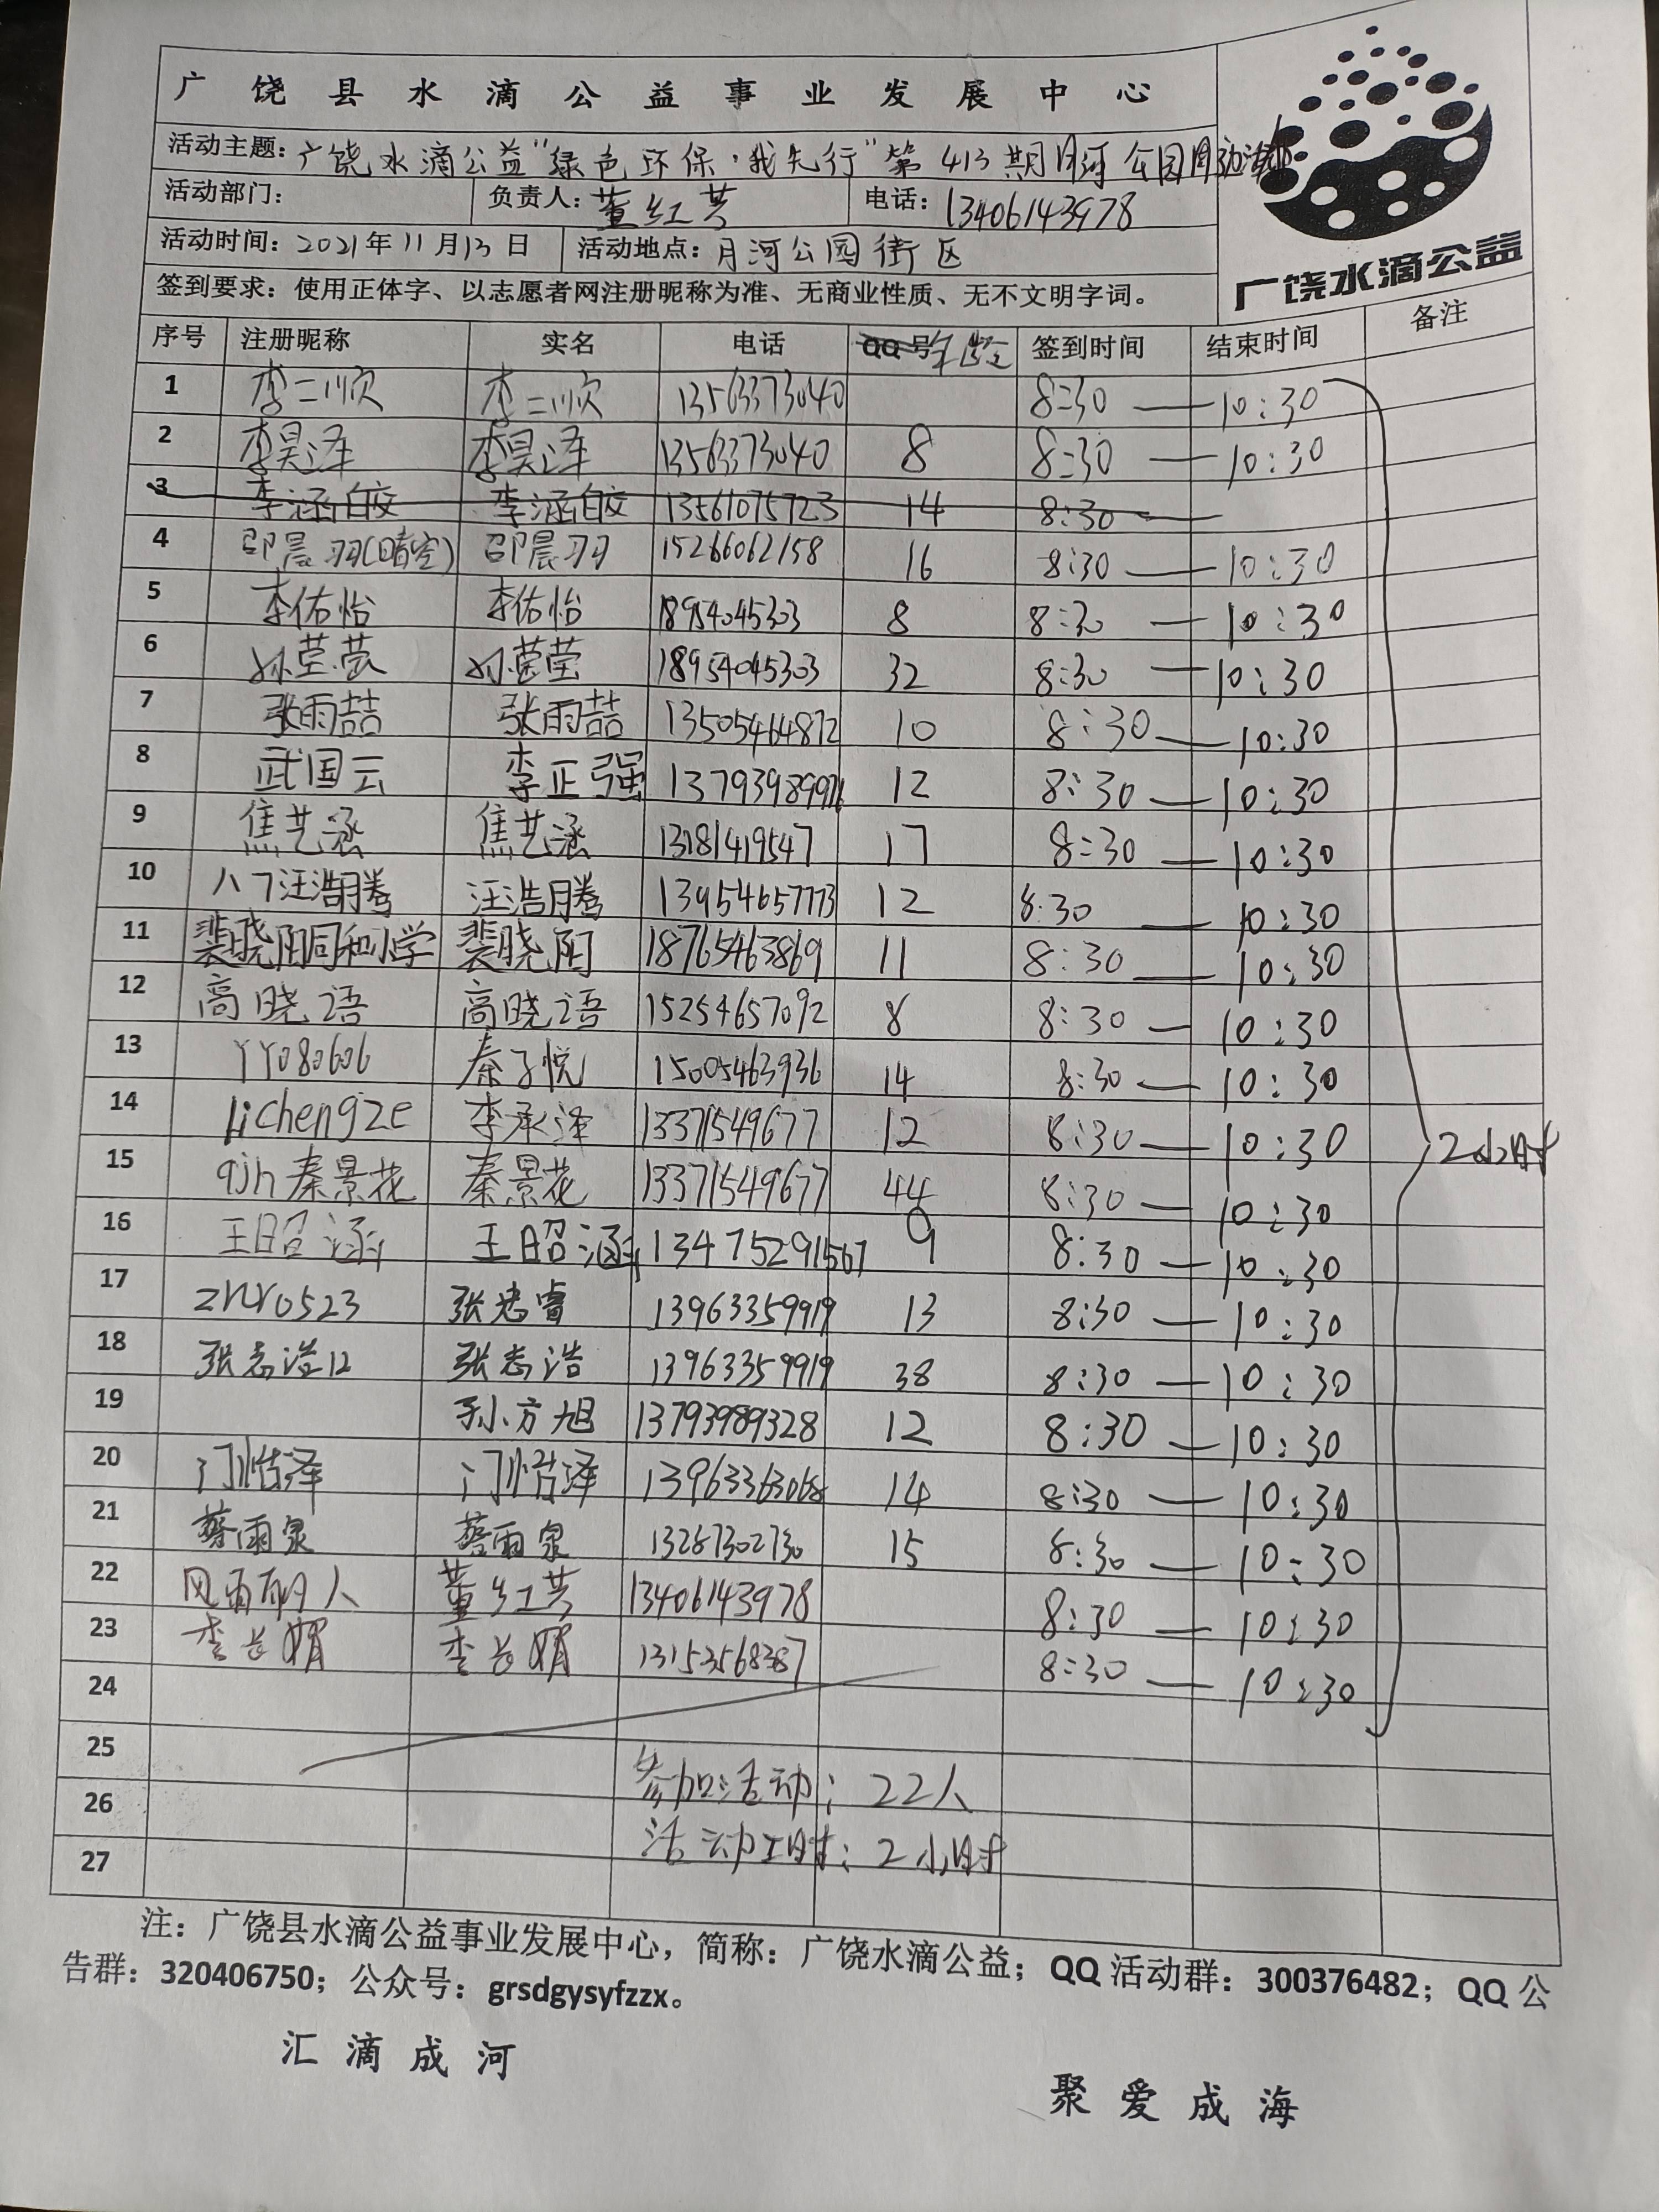 广饶县水滴公益事业发展中心
活动主题：广饶水滴公益"绿色环保·我先行"第413期月河公园
活动部门： 负责人：董红共 电话：13406143978
活动时间：2021年11月13日 活动地点：月河公园街区
广饶水滴公益
签到要求：使用正体字、以志愿者网注册昵称为准、无商业性质、无不文明字词。
序号 注册昵称 实名 电话 QQ号年龄 签到时间 结束时间 备注
1 李二顺 李二顺 13563373040 8:30 — 10:30
2 李昊泽 李昊泽 13563373040 8 8:30 — 10:30
3 李涵皎 李涵皎 13561075723 14 8:30 —
4 邵晨羽(晴空) 邵晨羽 15266062158 16 8:30 — 10:30
5 李佑怡 李佑怡 18954045303 8 8:30 — 10:30
6 孙莹莹 孙莹莹 18954045303 32 8:30 — 10:30
7 张雨喆 张雨喆 13505464872 10 8:30 — 10:30
8 武国云 李正强 13793989976 12 8:30 — 10:30
9 焦艺涵 焦艺涵 13181419547 17 8:30 — 10:30
10 八7汪浩腾 汪浩腾 13954657773 12 8:30 — 10:30
11 裴晓阳同和小学 裴晓阳 18765463869 11 8:30 — 10:30
12 高晓语 高晓语 15254657092 8 8:30 — 10:30
13 YY080606 秦子悦 15005463936 14 8:30 — 10:30
14 lichengze 李承泽 13371549677 12 8:30 — 10:30
15 qjh秦景花 秦景花 13371549677 44 8:30 — 10:30
2小时
16 王昭涵 王昭涵 13475291567 9 8:30 — 10:30
17 zhr0523 张忠睿 13963359919 13 8:30 — 10:30
18 张志浩12 张志浩 13963359919 38 8:30 — 10:30
19 孙方旭 13793989328 12 8:30 — 10:30
20 门恺泽 门恺泽 13963363068 14 8:30 — 10:30
21 蔡雨泉 蔡雨泉 13287302730 15 8:30 — 10:30
22 风雨的人 董红共 13406143978 8:30 — 10:30
23 李长娟 李长娟 13153568387 8:30 — 10:30
24
25 参加活动：22人
26 活动工时：2小时
27
注：广饶县水滴公益事业发展中心，简称：广饶水滴公益；QQ活动群：300376482；QQ公
告群：320406750；公众号：grsdgysyfzzx。
汇滴成河
聚爱成海